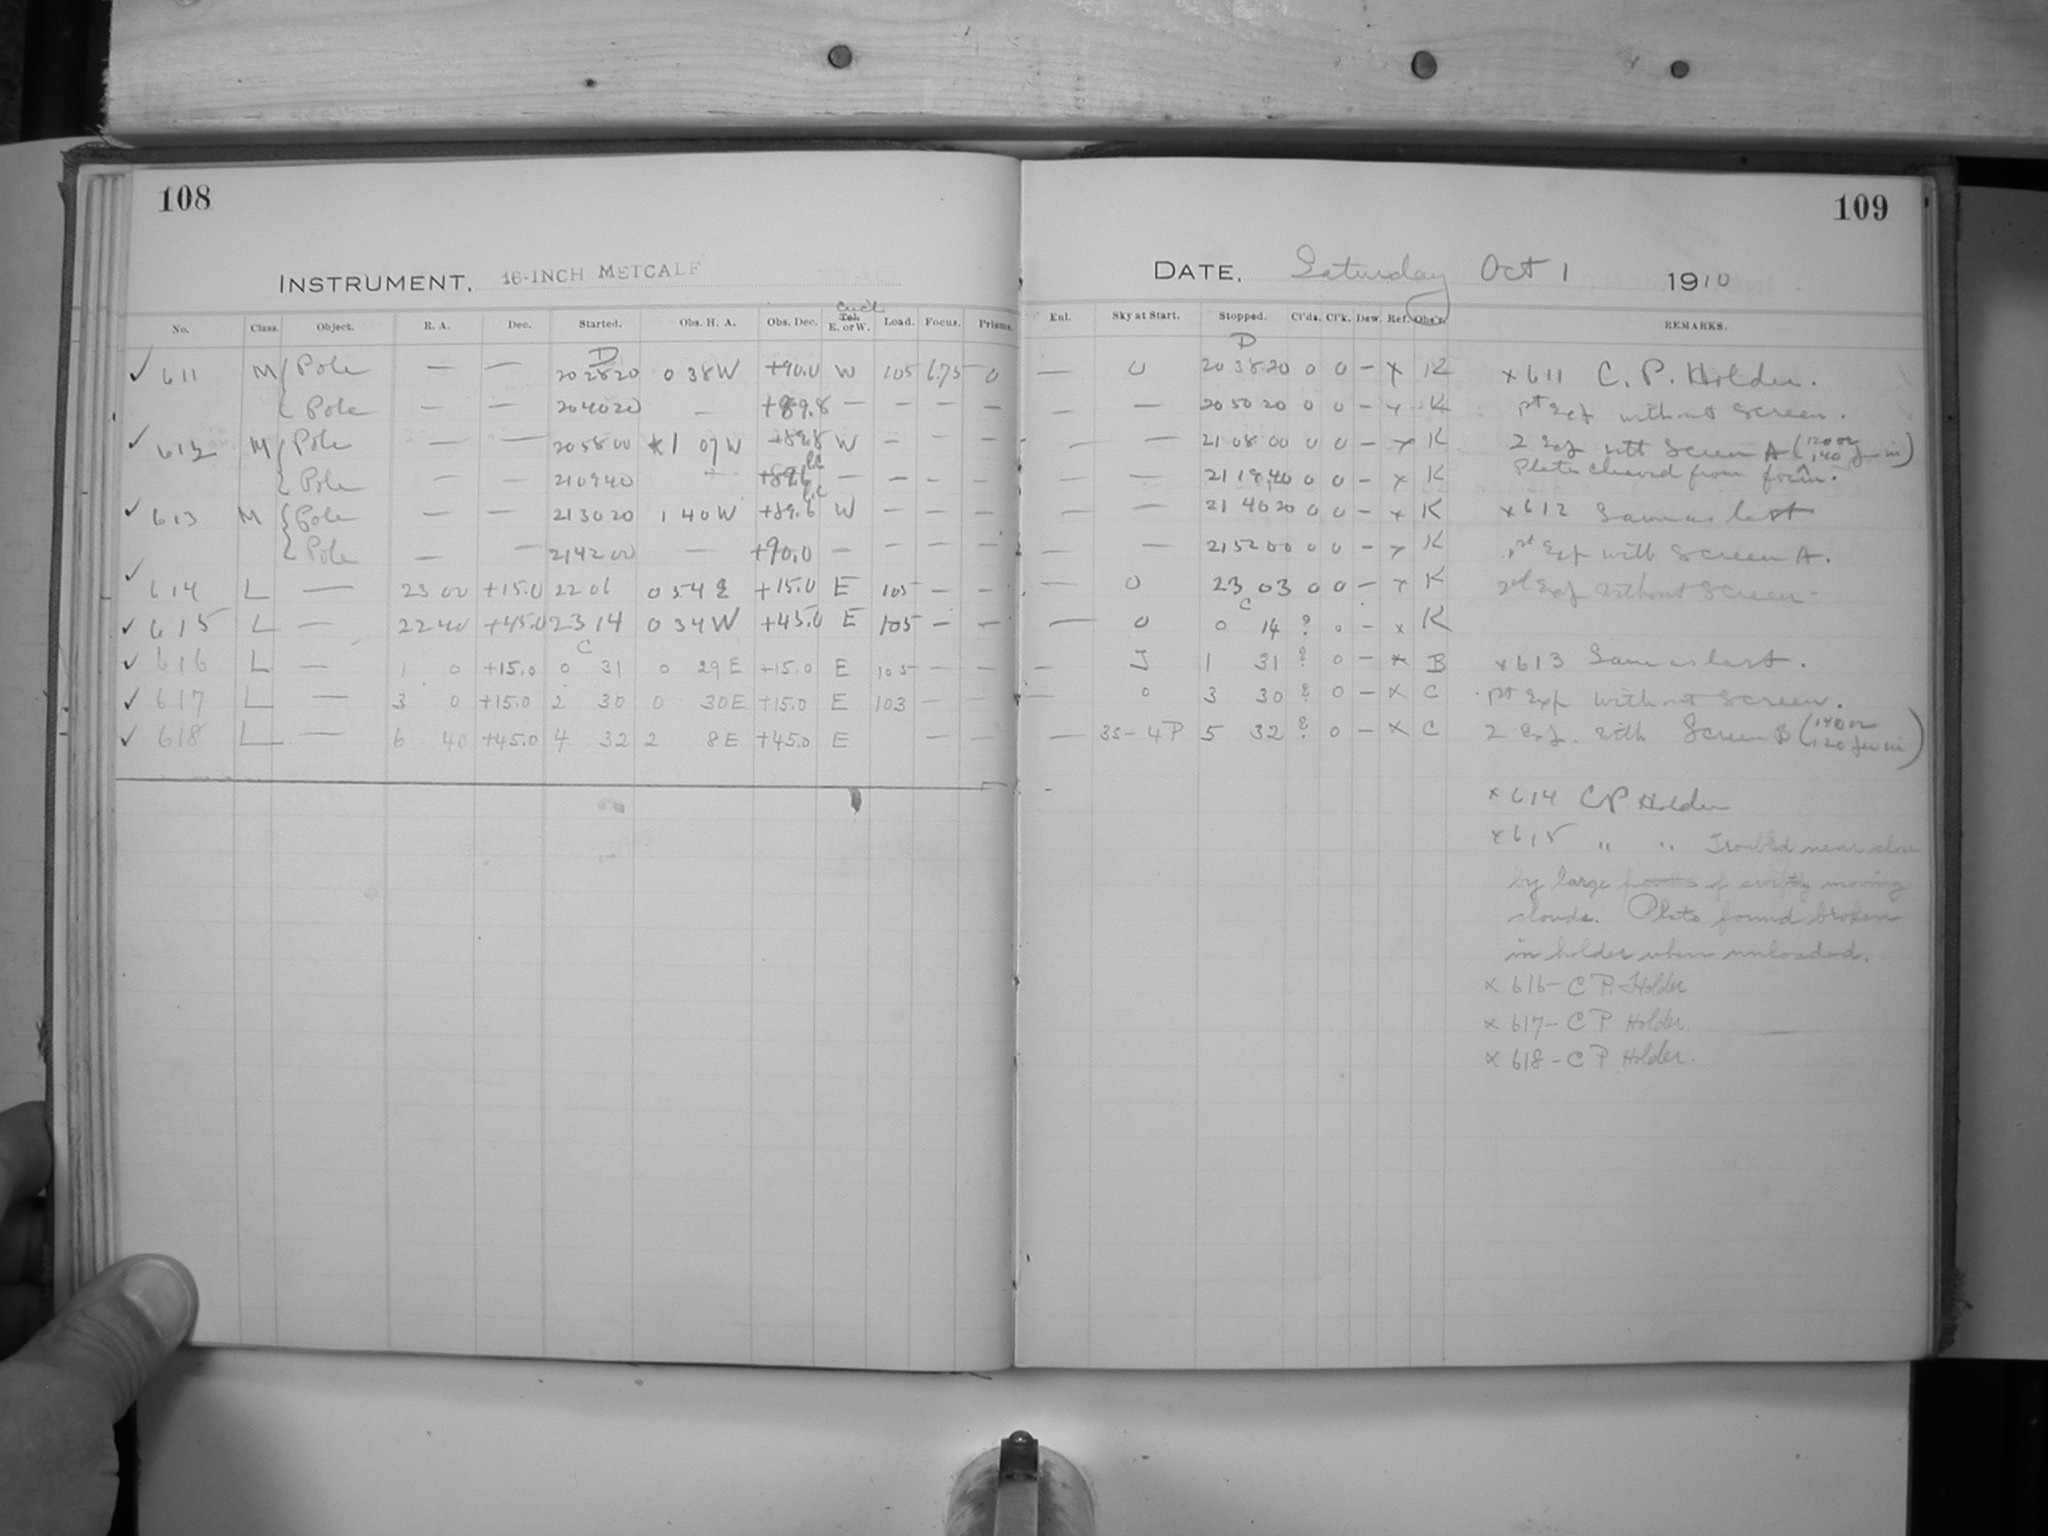 108
INSTRUMENT, 16-INCH METCALF
No. Class. Object. R. A. Dec. Started. Obs. H. A. Obs. Dec. Tel. E. or W. Load. Focus. Prisms.
D
✓ 611 M { Pole — — 20 28 20 0 38 W +90.0 W 105 6.75 0
{ Pole — — 20 40 20 — +89.8 — — — —
✓ 612 M { Pole — — 20 58 00 1 07 W +89.8 W — — —
{ Pole — — 21 09 40 — +89.6 — — — —
✓ 613 M { Pole — — 21 30 20 1 40 W +89.6 W — — —
{ Pole — — 21 42 00 — +90.0 — — — —
✓ 614 L — 23 00 +15.0 22 06 0 54 E +15.0 E 105 — —
✓ 615 L — 22 40 +45.0 23 14 0 34 W +45.0 E 105 — —
C
✓ 616 L — 1 0 +15.0 0 31 0 29 E +15.0 E 105 — —
✓ 617 L — 3 0 +15.0 2 30 0 30 E +15.0 E 103 — —
✓ 618 L — 6 40 +45.0 4 32 2 8 E +45.0 E — —
109
DATE, Saturday Oct 1 1910
Enl. Sky at Start. Stopped. Cl'ds. Cl'k. Dew. Ref. Obs'r. REMARKS.
D
— 0 20 38 20 0 0 — x K x 611 C. P. Holder.
— — 20 50 20 0 0 — x K 1st Exp without Screen.
— — 21 08 00 0 0 — x K 2 Exp with Screen A (120 or 140 per in)
— — 21 19 40 0 0 — x K Plates cleaved from
— — 21 40 20 0 0 — x K x 612 Same as last
— — 21 52 00 0 0 — x K 1st Exp with Screen A.
— 0 23 03 0 0 — x K 2nd Exp without Screen.
C
— 0 0 14 ? 0 — x K
— J 1 31 ? 0 — x B x 613 Same as last.
— 0 3 30 ? 0 — x C 1st Exp without Screen.
— 3S-4P 5 32 ? 0 — x C 2 Exp. with Screen B (140 or 120 per in)
x 614 CP Holder
x 615 " " Troubled near close
by large of swiftly moving
clouds. Plate found broken
in holder when unloaded.
x 616 - C P. Holder
x 617 - C P Holder
x 618 - C P Holder.